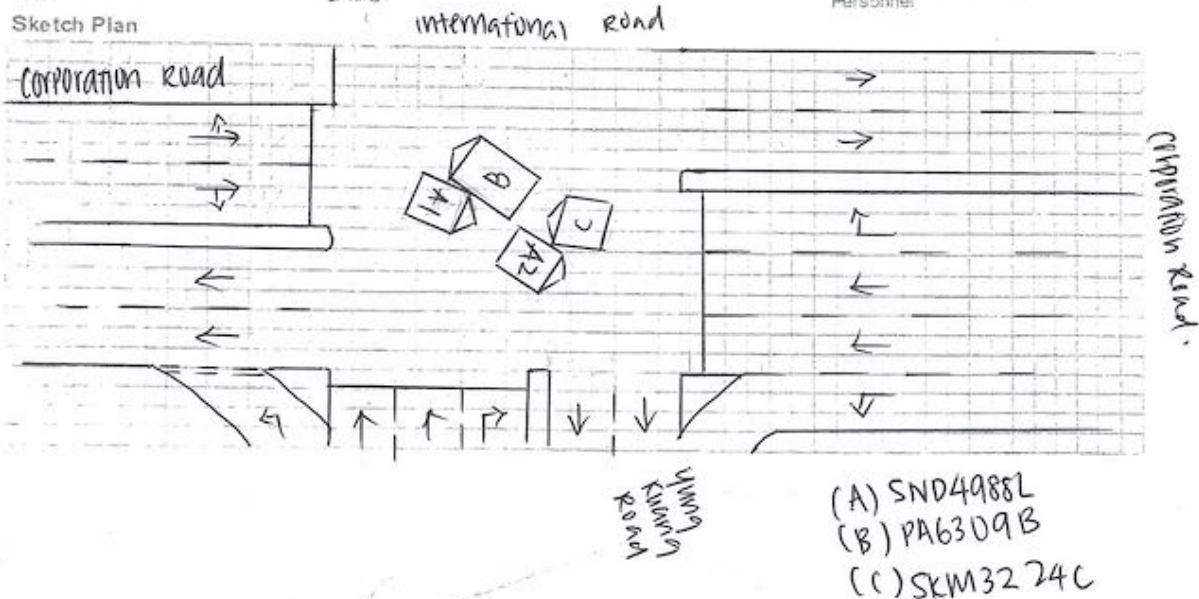 Sketch Plan
international Road
Corporation Road
B
A1
C
A2
Corporation Road.
Yung
Kuang
Road
(A) SND4988L
(B) PA6309B
(C) SKM3224C